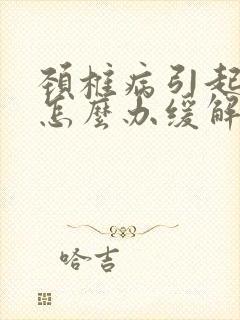 颈椎病引起
怎麼办缓解
哈吉